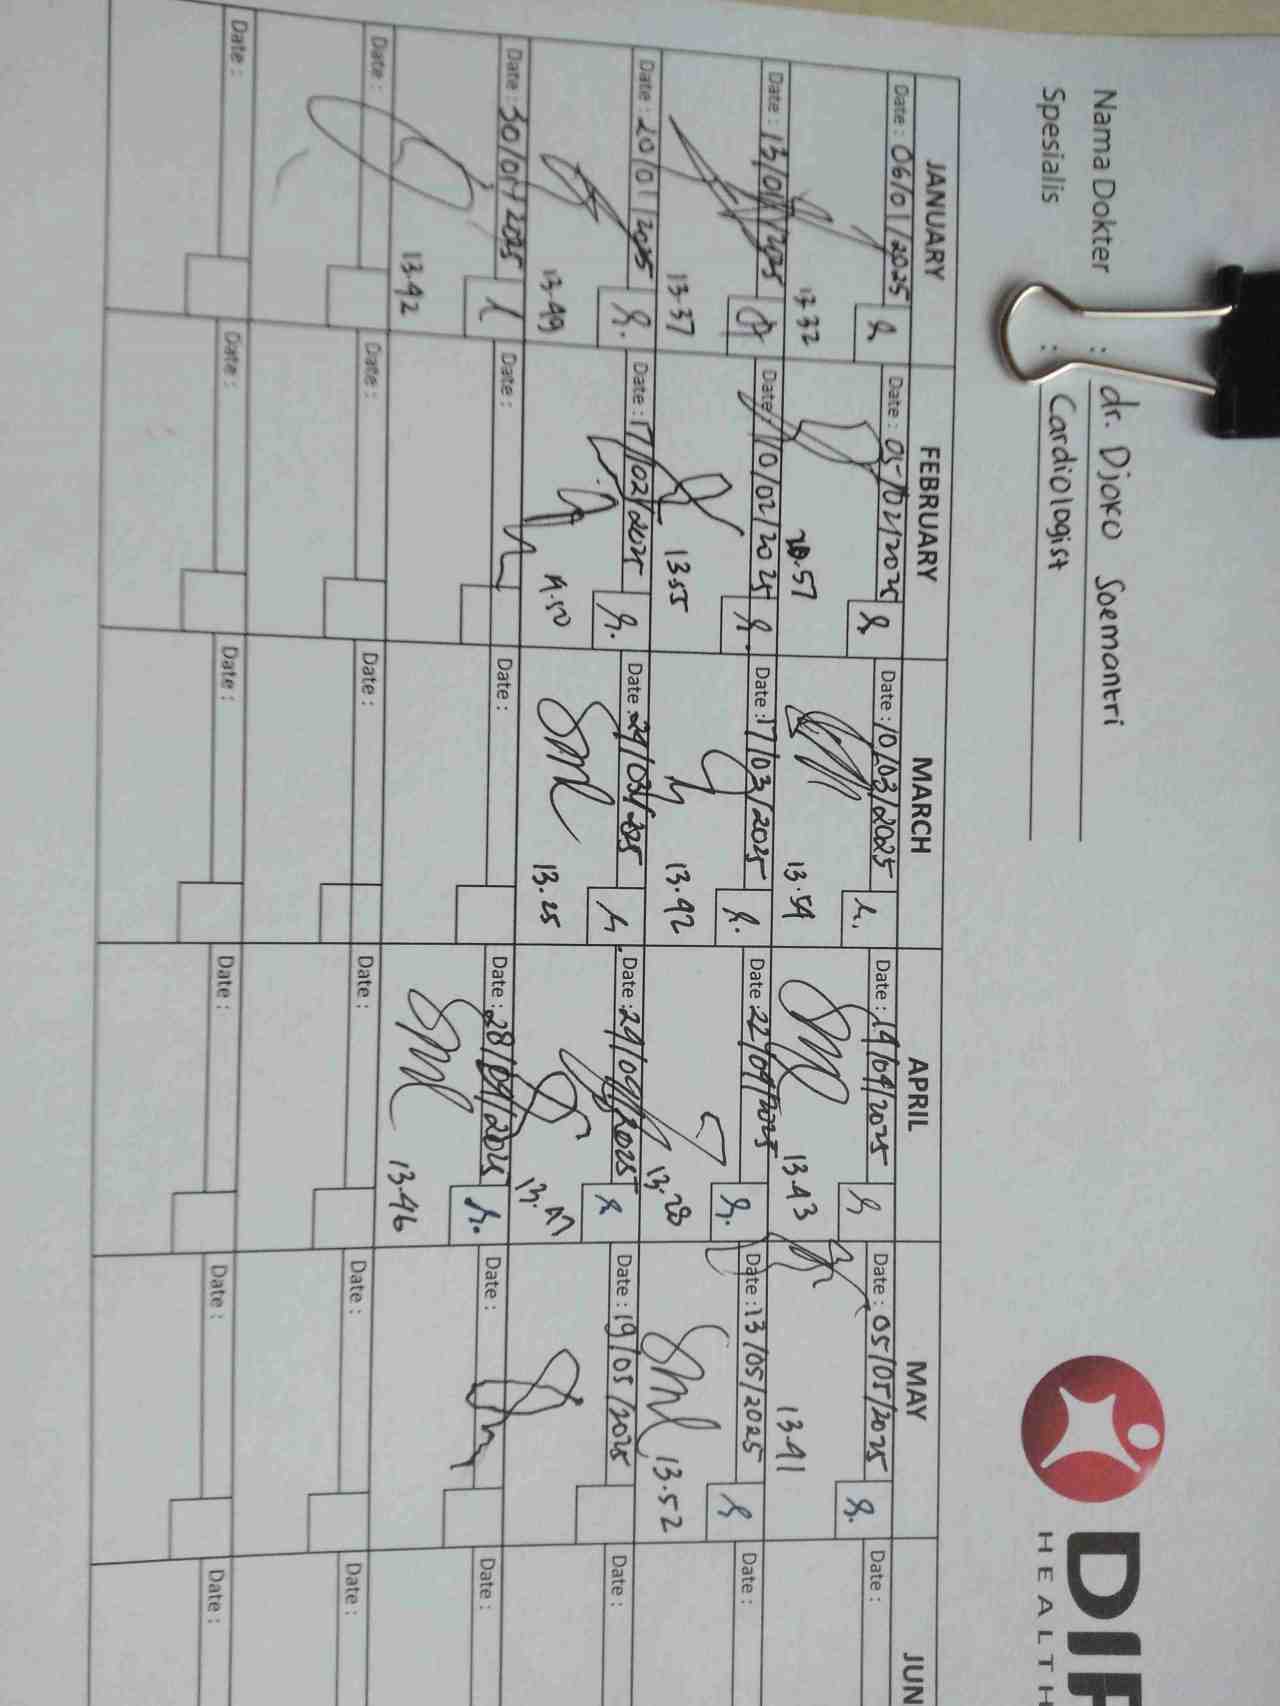 Nama Dokter : dr. Djoko Soemantri
Spesialis : Cardiologist
DIP
HEALTH
JANUARY FEBRUARY MARCH APRIL MAY JUN
Date : 06/01/2025 Date : 05/02/2025 Date : 10/03/2025 Date : 14/04/2025 Date : 05/05/2025 Date :
13.32 .57 13.54 13.43 13.41
Date : 13/01/2025 Date : 10/02/2025 Date : 17/03/2025 Date : 22/04/2025 Date : 13/05/2025 Date :
13.37 13.55 13.42 13.28 13.52
Date : 20/01/2025 Date : 17/02/2025 Date : 24/03/2025 Date : 24/04/2025 Date : 19/05/2025 Date :
13.49 14.50 13.25 13.47
Date : 30/01/2025 Date : Date : Date : 28/04/2025 Date : Date :
13.42 13.46
Date : Date : Date : Date : Date : Date :
Date : Date : Date : Date : Date : Date :